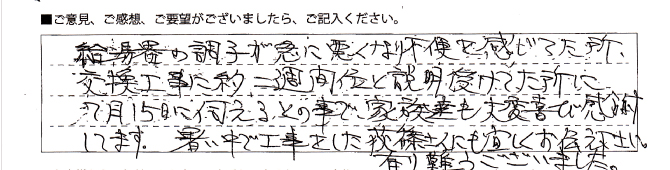 ■ご意見、ご感想、ご要望がございましたら、ご記入ください。
給湯器の調子が急に悪くなり不便を感じてた所、
交換工事に約二週間位と説明受けてた所に
7月15日に伺えるとの事で、家族共も大変喜び感謝
してます。暑い中で工事をした後藤さんにも宜しくお伝え下さい。
有り難うございました。